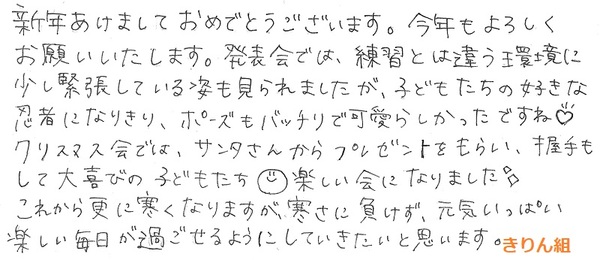 新年あけましておめでとうございます。今年もよろしく
お願いいたします。発表会では、練習とは違う環境に
少し緊張している姿も見られましたが、子どもたちの好きな
忍者になりきり、ポーズもバッチリで可愛らしかったですね♡
クリスマス会では、サンタさんからプレゼントをもらい、握手も
して大喜びの子どもたち☺楽しい会になりました♪
これから更に寒くなりますが、寒さに負けず、元気いっぱい
楽しい毎日が過ごせるようにしていきたいと思います。きりん組